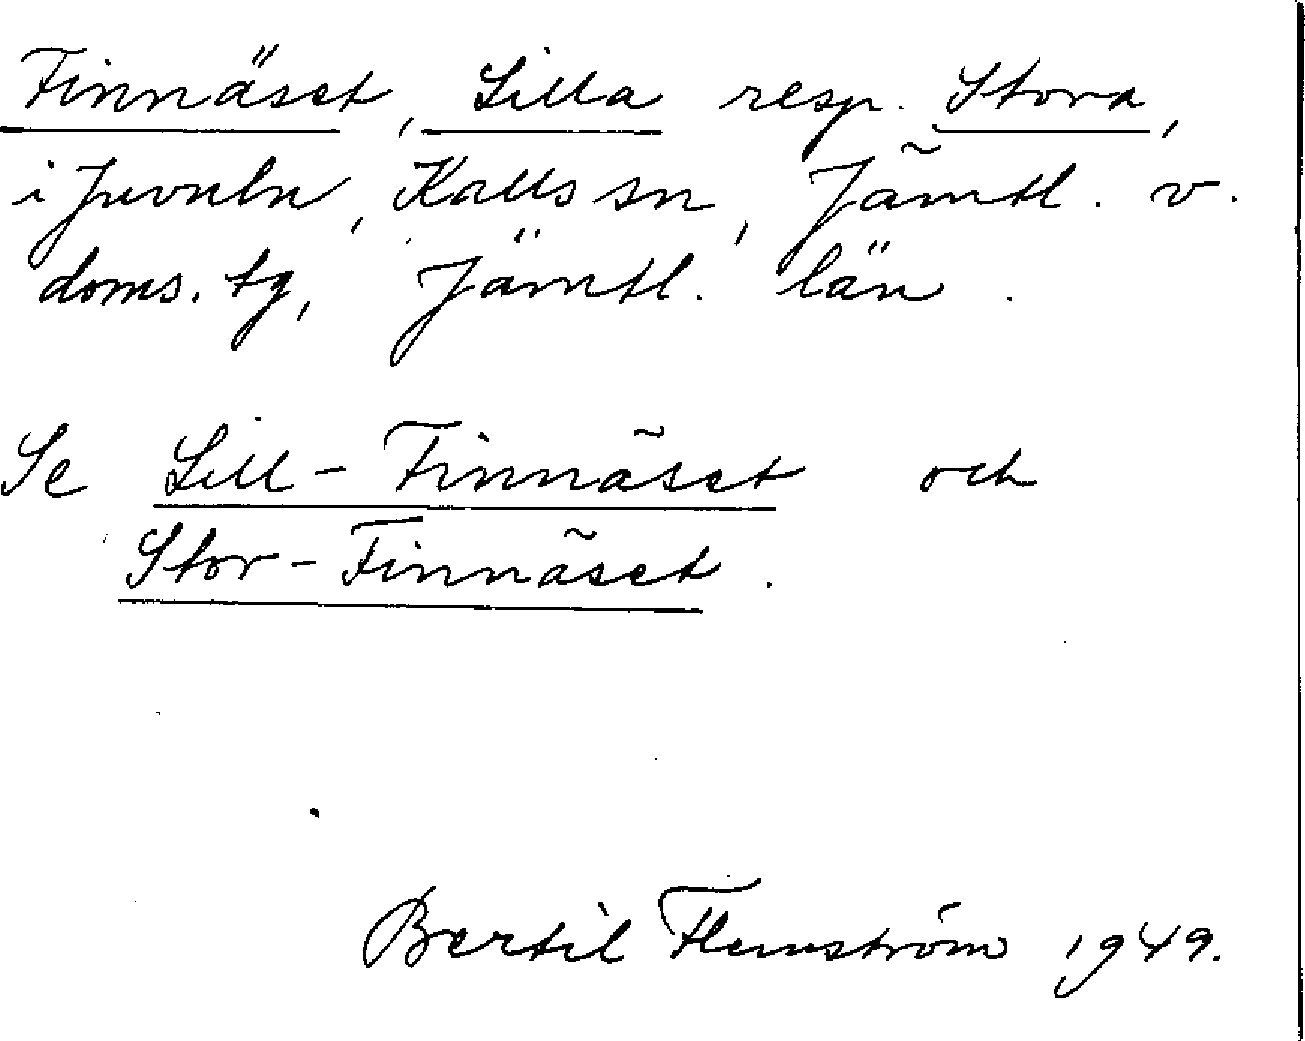 Finnäset, Lilla resp. Stora,
i Juveln, Kalls sn, Jämtl. v.
doms. tg, Jämtl. län.
Se Lill-Finnäset och
Stor-Finnäset.
Bertil Flemström 1949.